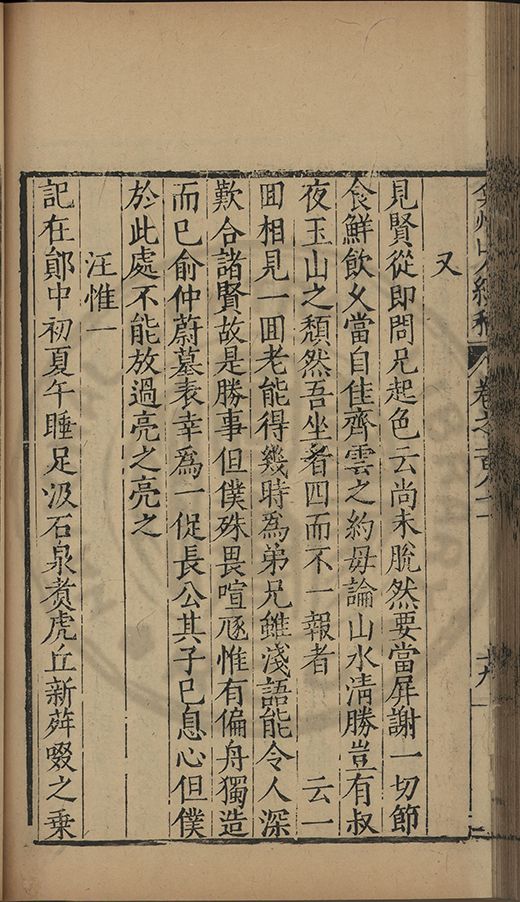 又
見賢從即問兄起色云尚未脫然要當屏謝一切節
食鮮飲乆當自佳齊雲之約毋論山水清勝豈有叔
夜玉山之頹然吾坐者四而不一報者 云一
回相見一回老能得幾時為弟兄雖淺語能令人深
歎合諸賢故是勝事但僕殊畏喧惟有偏舟獨造
而已俞仲蔚墓表幸為一促長公其子已息心但僕
於此處不能放過亮之亮之
汪惟一
記在鄖中初夏午睡足汲石泉煑虎丘新荈啜之乗